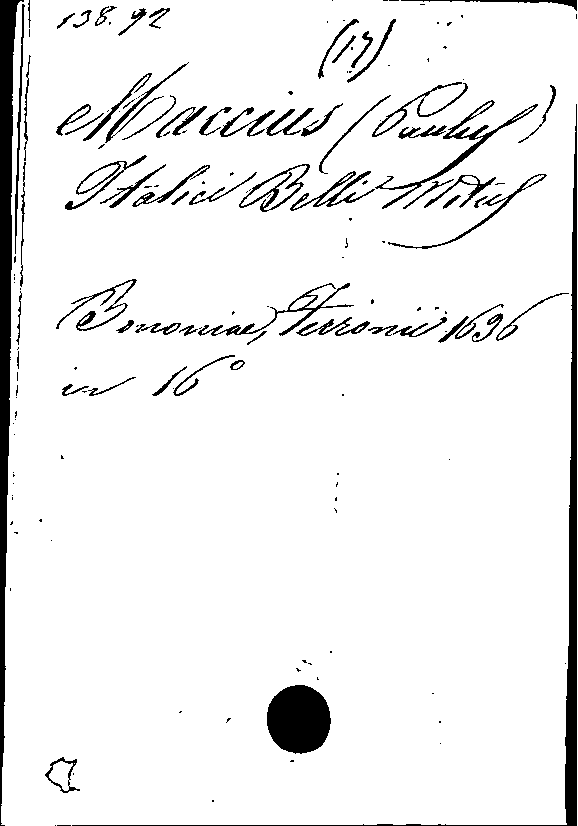 138.92
(17)
Maccius (Paulus)
Italici Belli Motus
Bononiae, Ferronii 1636
in 16°